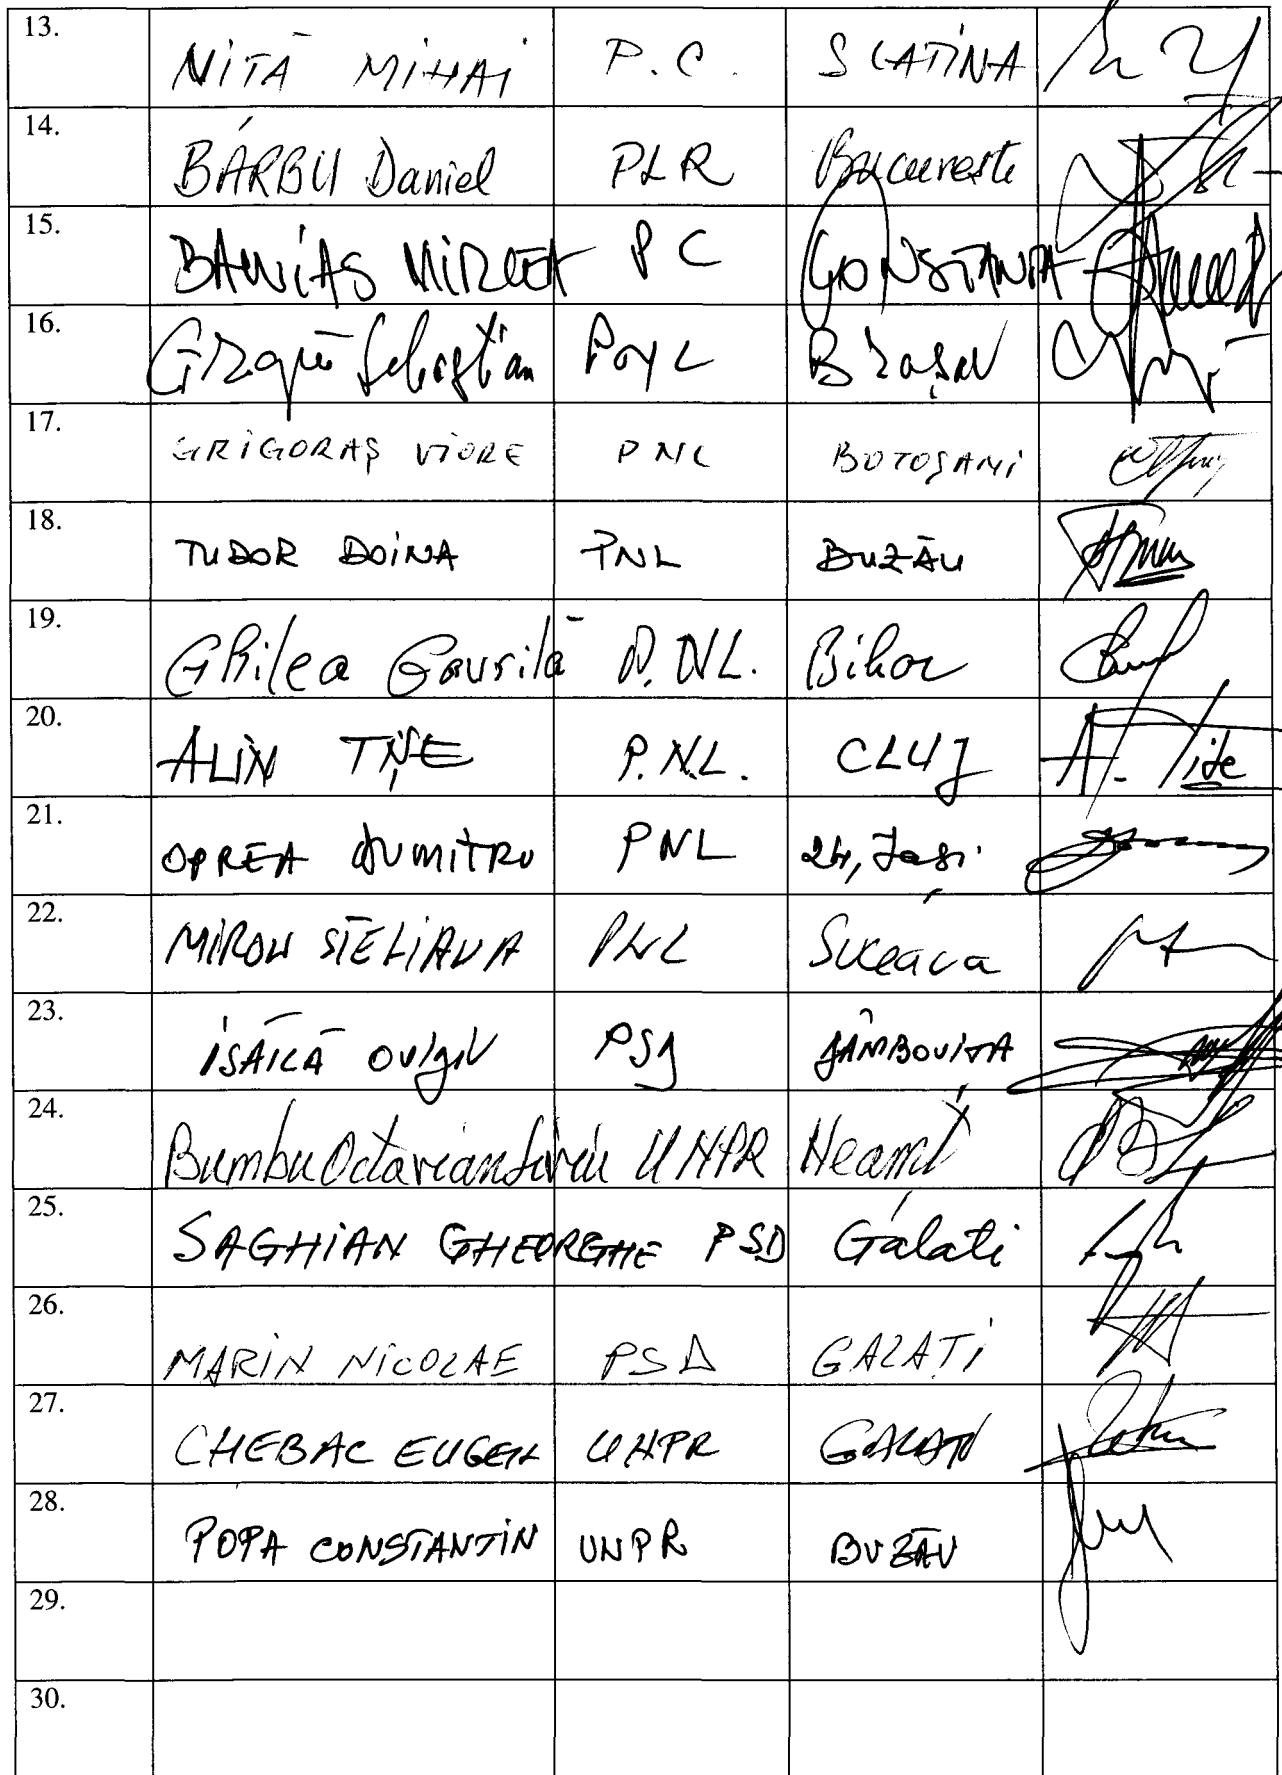 13. NIȚĂ MIHAI P.C. SLATINA
14. BARBU Daniel PLR Bucuresti
15. BANIAS MIRCEA PC CONSTANTA
16. Sebastian Brașov
17. GRIGORAȘ VIORE PNL BOTOȘANI
18. TUDOR DOINA PNL BUZĂU
19. Ghilea Gavrilă P.NL. Bihor
20. ALIN TIȘE P.N.L. CLUJ A. Tișe
21. OPREA DUMITRU PNL 24, Iași
22. MIRON STELIANA PNL Suceava
23. ISĂILĂ OVIDIU PSD DÂMBOVIȚA
24. Bumbu Octavian Liviu UNPR Neamț
25. SAGHIAN GHEORGHE PSD Galati
26. MARIN NICOLAE PSD GALAȚI
27. CHEBAC EUGEN UNPR GALATI
28. POPA CONSTANTIN UNPR BUZĂU
29.
30.